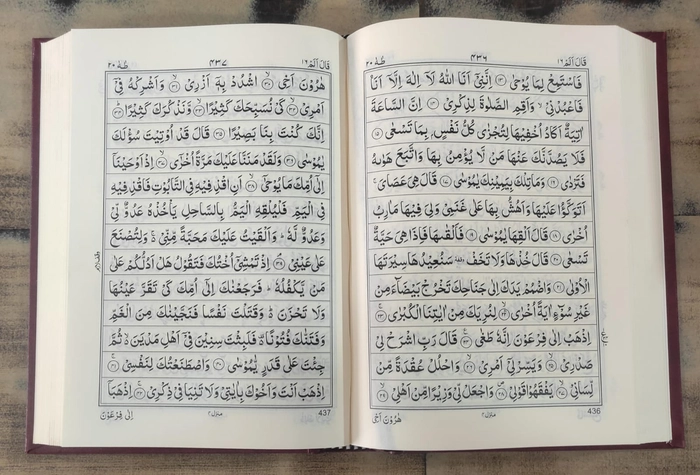 قَالَ اَلَمْ ١٦
٤٣٦
طٰهٰ ٢٠
فَاسْتَمِعْ لِمَا يُوْحٰى ﴿١٣﴾ اِنَّنِيْۤ اَنَا اللّٰهُ لَاۤ اِلٰهَ اِلَّاۤ اَنَا
فَاعْبُدْنِيْ ۙ وَاَقِمِ الصَّلٰوةَ لِذِكْرِيْ ﴿١٤﴾ اِنَّ السَّاعَةَ
اٰتِيَةٌ اَكَادُ اُخْفِيْهَا لِتُجْزٰى كُلُّ نَفْسٍۭ بِمَا تَسْعٰى ﴿١٥﴾
فَلَا يَصُدَّنَّكَ عَنْهَا مَنْ لَّا يُؤْمِنُ بِهَا وَاتَّبَعَ هَوٰىهُ
فَتَرْدٰى ﴿١٦﴾ وَمَا تِلْكَ بِيَمِيْنِكَ يٰمُوْسٰى ﴿١٧﴾ قَالَ هِيَ عَصَايَ ۚ
اَتَوَكَّؤُا عَلَيْهَا وَاَهُشُّ بِهَا عَلٰى غَنَمِيْ وَلِيَ فِيْهَا مَاٰرِبُ
اُخْرٰى ﴿١٨﴾ قَالَ اَلْقِهَا يٰمُوْسٰى ﴿١٩﴾ فَاَلْقٰىهَا فَاِذَا هِيَ حَيَّةٌ
تَسْعٰى ﴿٢٠﴾ قَالَ خُذْهَا وَلَا تَخَفْ وقفة سَنُعِيْدُهَا سِيْرَتَهَا
الْاُوْلٰى ﴿٢١﴾ وَاضْمُمْ يَدَكَ اِلٰى جَنَاحِكَ تَخْرُجْ بَيْضَآءَ مِنْ
غَيْرِ سُوْٓءٍ اٰيَةً اُخْرٰى ﴿٢٢﴾ لِنُرِيَكَ مِنْ اٰيٰتِنَا الْكُبْرٰى ﴿٢٣﴾
اِذْهَبْ اِلٰى فِرْعَوْنَ اِنَّهٗ طَغٰى ﴿٢٤﴾ قَالَ رَبِّ اشْرَحْ لِيْ
صَدْرِيْ ﴿٢٥﴾ وَيَسِّرْ لِيْۤ اَمْرِيْ ﴿٢٦﴾ وَاحْلُلْ عُقْدَةً مِّنْ
لِّسَانِيْ ﴿٢٧﴾ يَفْقَهُوْا قَوْلِيْ ﴿٢٨﴾ وَاجْعَلْ لِّيْ وَزِيْرًا مِّنْ اَهْلِيْ ﴿٢٩﴾
436
منزل ٤
هٰرُوْنَ اَخِي
قَالَ اَلَمْ ١٦
٤٣٧
طٰهٰ ٢٠
هٰرُوْنَ اَخِي ﴿٣٠﴾ اشْدُدْ بِهٖۤ اَزْرِيْ ﴿٣١﴾ وَاَشْرِكْهُ فِيْۤ
اَمْرِيْ ﴿٣٢﴾ كَيْ نُسَبِّحَكَ كَثِيْرًا ﴿٣٣﴾ وَّنَذْكُرَكَ كَثِيْرًا ﴿٣٤﴾
اِنَّكَ كُنْتَ بِنَا بَصِيْرًا ﴿٣٥﴾ قَالَ قَدْ اُوْتِيْتَ سُؤْلَكَ
يٰمُوْسٰى ﴿٣٦﴾ وَلَقَدْ مَنَنَّا عَلَيْكَ مَرَّةً اُخْرٰىۤ ﴿٣٧﴾ اِذْ اَوْحَيْنَاۤ
اِلٰۤى اُمِّكَ مَا يُوْحٰۤى ﴿٣٨﴾ اَنِ اقْذِفِيْهِ فِي التَّابُوْتِ فَاقْذِفِيْهِ
فِي الْيَمِّ فَلْيُلْقِهِ الْيَمُّ بِالسَّاحِلِ يَاْخُذْهُ عَدُوٌّ لِّيْ
وَعَدُوٌّ لَّهٗ ؕ وَاَلْقَيْتُ عَلَيْكَ مَحَبَّةً مِّنِّيْ ۚ وَلِتُصْنَعَ
عَلٰى عَيْنِيْ ﴿٣٩﴾ اِذْ تَمْشِيْۤ اُخْتُكَ فَتَقُوْلُ هَلْ اَدُلُّكُمْ عَلٰى
مَنْ يَّكْفُلُهٗ ؕ فَرَجَعْنٰكَ اِلٰۤى اُمِّكَ كَيْ تَقَرَّ عَيْنُهَا
وَلَا تَحْزَنَ ؕ وَقَتَلْتَ نَفْسًا فَنَجَّيْنٰكَ مِنَ الْغَمِّ
وَفَتَنّٰكَ فُتُوْنًا ۫ فَلَبِثْتَ سِنِيْنَ فِيْۤ اَهْلِ مَدْيَنَ ۙ ثُمَّ
جِئْتَ عَلٰى قَدَرٍ يّٰمُوْسٰى ﴿٤٠﴾ وَاصْطَنَعْتُكَ لِنَفْسِيْ ﴿٤١﴾
اِذْهَبْ اَنْتَ وَاَخُوْكَ بِاٰيٰتِيْ وَلَا تَنِيَا فِيْ ذِكْرِيْ ﴿٤٢﴾ اِذْهَبَاۤ
437
منزل ٤
اِلٰى فِرْعَوْنَ